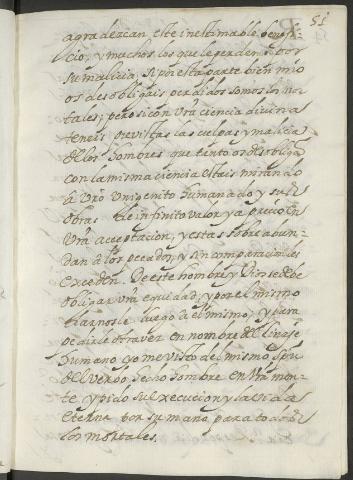 51
agradezcan este inestimable benefi-
cio, y muchos los que le perderan por
su malicia. Si por esta parte bien mio
os desobligais perdidos somos los mor-
tales; pero si con vra ciencia divina
teneis previstas las culpas y malicia
de los hombres que tanto os desobliga
con la misma ciencia estais mirando
a vro Unigenito humanado y sus
obras de infinito valor y aprecio en
vra acceptacion, y estas sobreabun-
dan a los pecados, y sin comparacion los
exceden. De este hombre y Dios se debe
obligar vra equidad, y por el mismo
darnosle luego a el mismo, y para
pedirle otra vez en nombre del linaje
humano yo me visto del mismo Spu
del verbo hecho hombre en vra men-
te y pido su execucion y la vida
eterna por su mano para todos
los mortales.